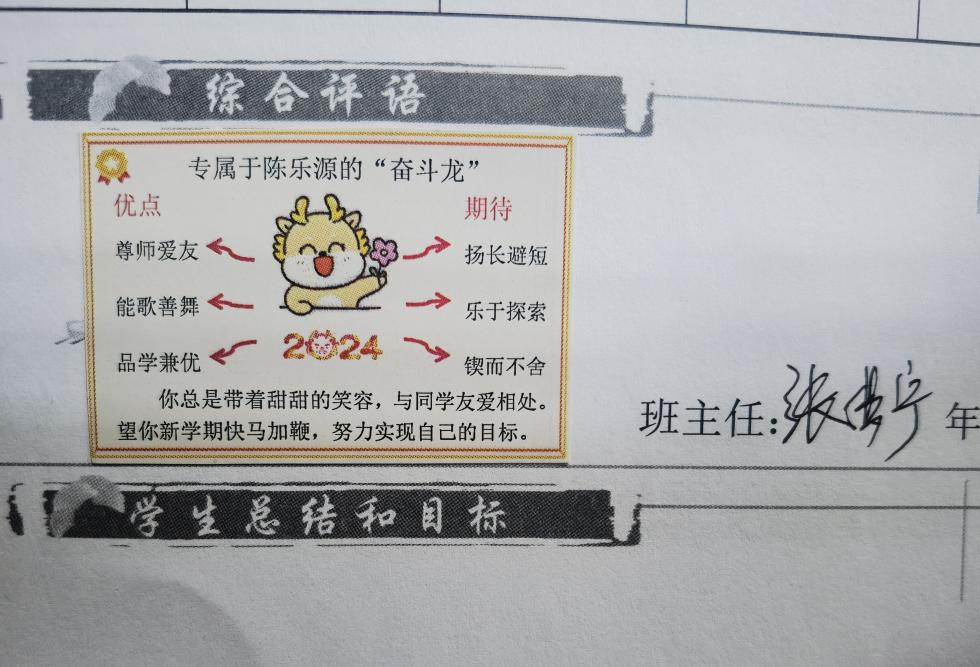 综合评语
专属于陈乐源的“奋斗龙”
优点
期待
尊师爱友
扬长避短
能歌善舞
乐于探索
品学兼优
锲而不舍
2024
你总是带着甜甜的笑容，与同学友爱相处。
望你新学期快马加鞭，努力实现自己的目标。
班主任:
年
学生总结和目标